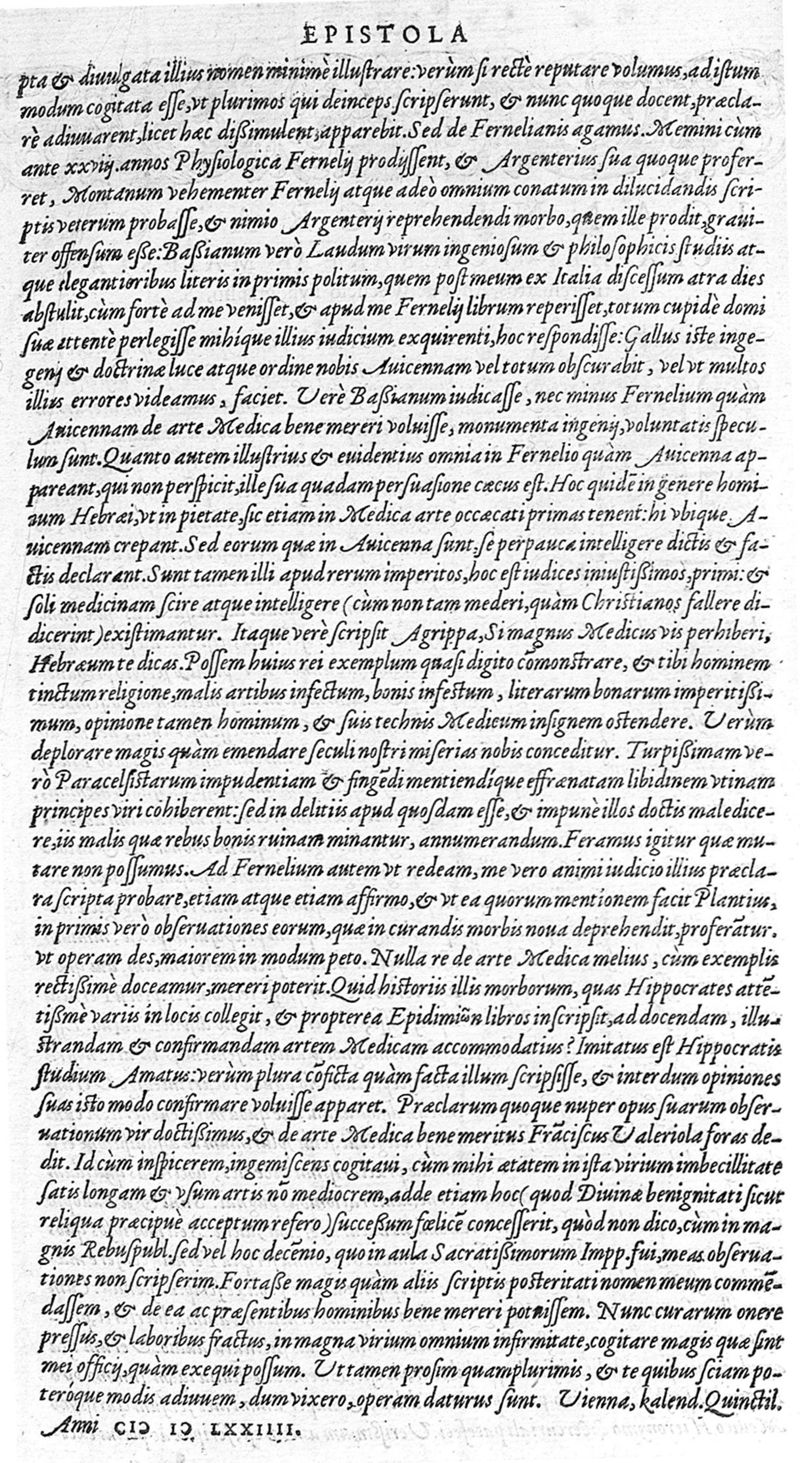 EPISTOLA
pta & diuulgata illius nomen minimè illustrare: verùm si rectè reputare volumus, ad istum
modum cogitata esse, vt plurimos qui deinceps scripserunt, & nunc quoque docent, præcla-
rè adiuuarent, licet hæc dißimulent, apparebit. Sed de Fernelianis agamus. Memini cùm
ante xxviij. annos Physiologica Fernelij prodijssent, & Argenterius sua quoque profer-
ret, Montanum vehementer Fernelij atque adeò omnium conatum in dilucidandis scri-
ptis veterum probasse, & nimio Argenterij reprehendendi morbo, quem ille prodit, graui-
ter offensum eße: Baßianum verò Laudum virum ingeniosum & philosophicis studiis at-
que elegantioribus literis in primis politum, quem post meum ex Italia discessum atra dies
abstulit, cùm fortè ad me venisset, & apud me Fernelij librum reperisset, totum cupidè domi
suæ attentè perlegisse mihíque illius iudicium exquirenti, hoc respondisse: Gallus iste inge-
genij & doctrinæ luce atque ordine nobis Auicennam vel totum obscurabit, vel vt multos
illius errores videamus, faciet. Verè Baßianum iudicasse, nec minus Fernelium quàm
Auicennam de arte Medica bene mereri voluisse, monumenta ingenij, voluntatis specu-
lum sunt. Quanto autem illustrius & euidentius omnia in Fernelio quàm Auicenna ap-
pareant, qui non perspicit, ille sua quadam persuasione cæcus est. Hoc quidē in genere homi-
num Hebræi, vt in pietate, sic etiam in Medica arte occæcati primas tenent: hi vbique A-
uicennam crepant. Sed eorum quæ in Auicenna sunt, se perpauca intelligere dictis & fa-
ctis declarant. Sunt tamen illi apud rerum imperitos, hoc est iudices iniustißimos, primi: &
soli medicinam scire atque intelligere (cùm non tam mederi, quàm Christianos fallere di-
dicerint) existimantur. Itaque verè scripsit Agrippa, Si magnus Medicus vis perhiberi,
Hebræum te dicas. Possem huius rei exemplum quasi digito cōmonstrare, & tibi hominem
tinctum religione, malis artibus infectum, bonis infestum, literarum bonarum imperitißi-
mum, opinione tamen hominum, & suis technis Medicum insignem ostendere. Verùm
deplorare magis quàm emendare seculi nostri miserias nobis conceditur. Turpißimam ve-
rò Paracelsistarum impudentiam & fingēdi mentiendíque effrænatam libidinem vtinam
principes viri cohiberent: sed in delitiis apud quosdam esse, & impunè illos doctis maledice-
re, iis malis quæ rebus bonis ruinam minantur, annumerandum. Feramus igitur quæ mu-
tare non possumus. Ad Fernelium autem vt redeam, me vero animi iudicio illius præcla-
ra scripta probare, etiam atque etiam affirmo, & vt ea quorum mentionem facit Plantius,
in primis verò obseruationes eorum, quæ in curandis morbis noua deprehendit, proferātur,
vt operam des, maiorem in modum peto. Nulla re de arte Medica melius, cùm exemplis
rectißimè doceamur, mereri poterit. Quid historiis illis morborum, quas Hippocrates attē-
tißmè variis in locis collegit, & propterea Epidimiωn libros inscripsit, ad docendam, illu-
strandam & confirmandam artem Medicam accommodatius? Imitatus est Hippocratis
studium Amatus: verùm plura cōficta quàm facta illum scripsisse, & interdum opiniones
suas isto modo confirmare voluisse apparet. Præclarum quoque nuper opus suarum obser-
uationum vir doctißimus, & de arte Medica bene meritus Frāciscus Valeriola foras de-
dit. Id cùm inspicerem, ingemiscens cogitaui, cùm mihi ætatem in ista virium imbecillitate
satis longam & vsum artis nō mediocrem, adde etiam hoc (quod Diuinæ benignitati sicut
reliqua præcipuè acceptum refero) succeßum fœlicē concesserit, quòd non dico, cùm in ma-
gnis Rebuspubl. sed vel hoc decēnio, quo in aula Sacratißimorum Impp. fui, meas obserua-
tiones non scripserim. Fortaße magis quàm aliis scriptis posteritati nomen meum commē-
dassem, & de ea ac præsentibus hominibus bene mereri potuissem. Nunc curarum onere
pressus, & laboribus fractus, in magna virium omnium infirmitate, cogitare magis quæ sint
mei officij, quàm exequi possum. Ut tamen prosim quamplurimis, & te quibus sciam po-
teroque modis adiuuem, dum vixero, operam daturus sunt. Vienna, kalend. Quinctil.
Anni CIↃ IↃ LXXIIII.